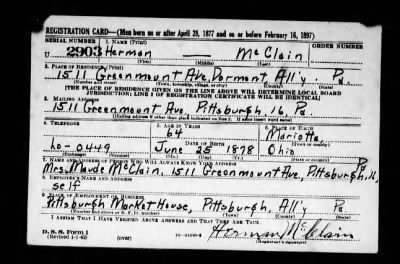 REGISTRATION CARD—(Men born on or after April 28, 1877 and on or before February 16, 1897)
SERIAL NUMBER 1. NAME (Print) ORDER NUMBER
U 2903 Herman — McClain
(First) (Middle) (Last)
2. PLACE OF RESIDENCE (Print)
1511 Greenmount Ave, Dormont, All'y. Pa.
(Number and street) (Town, township, village, or city) (County) (State)
[THE PLACE OF RESIDENCE GIVEN ON THE LINE ABOVE WILL DETERMINE LOCAL BOARD
JURISDICTION; LINE 2 OF REGISTRATION CERTIFICATE WILL BE IDENTICAL]
3. MAILING ADDRESS
1511 Greenmount Ave, Pittsburgh, 16, Pa.
[Mailing address if other than place indicated on line 2. If same insert word same]
4. TELEPHONE 5. AGE IN YEARS 6. PLACE OF BIRTH
64 Marietta,
DATE OF BIRTH (Town or county)
Lo-0449 June 25 1878 Ohio
(Exchange) (Number) (Mo.) (Day) (Yr.) (State or country)
7. NAME AND ADDRESS OF PERSON WHO WILL ALWAYS KNOW YOUR ADDRESS Pa.
Mrs. Maude McClain, 1511 Greenmount Ave, Pittsburgh, 16,
8. EMPLOYER'S NAME AND ADDRESS
self
9. PLACE OF EMPLOYMENT OR BUSINESS
Pittsburgh Market House, Pittsburgh, All'y Pa.
(Number and street or R. F. D. number) (Town) (County) (State)
I AFFIRM THAT I HAVE VERIFIED ABOVE ANSWERS AND THAT THEY ARE TRUE.
D. S. S. Form 1 Herman McClain
(Revised 4-1-42) (over) (Registrant's signature)